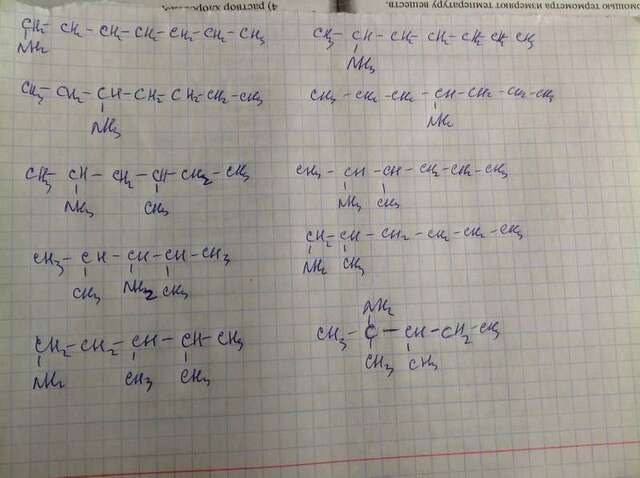 4) раствор хлоро
омощью термометра измеряют температуру веществ.
CH2 - CH2 - CH2 - CH2 - CH2 - CH2 - CH3
NH2
CH3 - CH - CH2 - CH2 - CH2 - CH2 - CH3
NH2
CH3 - CH2 - CH - CH2 - CH2 - CH2 - CH3
NH2
CH3 - CH2 - CH2 - CH - CH2 - CH2 - CH3
NH2
CH3 - CH - CH2 - CH - CH2 - CH3
NH2 CH3
CH3 - CH - CH - CH2 - CH2 - CH3
NH2 CH3
CH3 - CH - CH - CH - CH3
CH3 NH2 CH3
CH2 - CH - CH2 - CH2 - CH2 - CH3
NH2 CH3
CH2 - CH2 - CH - CH - CH3
NH2 CH3 CH3
NH2
CH3 - C - CH - CH2 - CH3
CH3 CH3